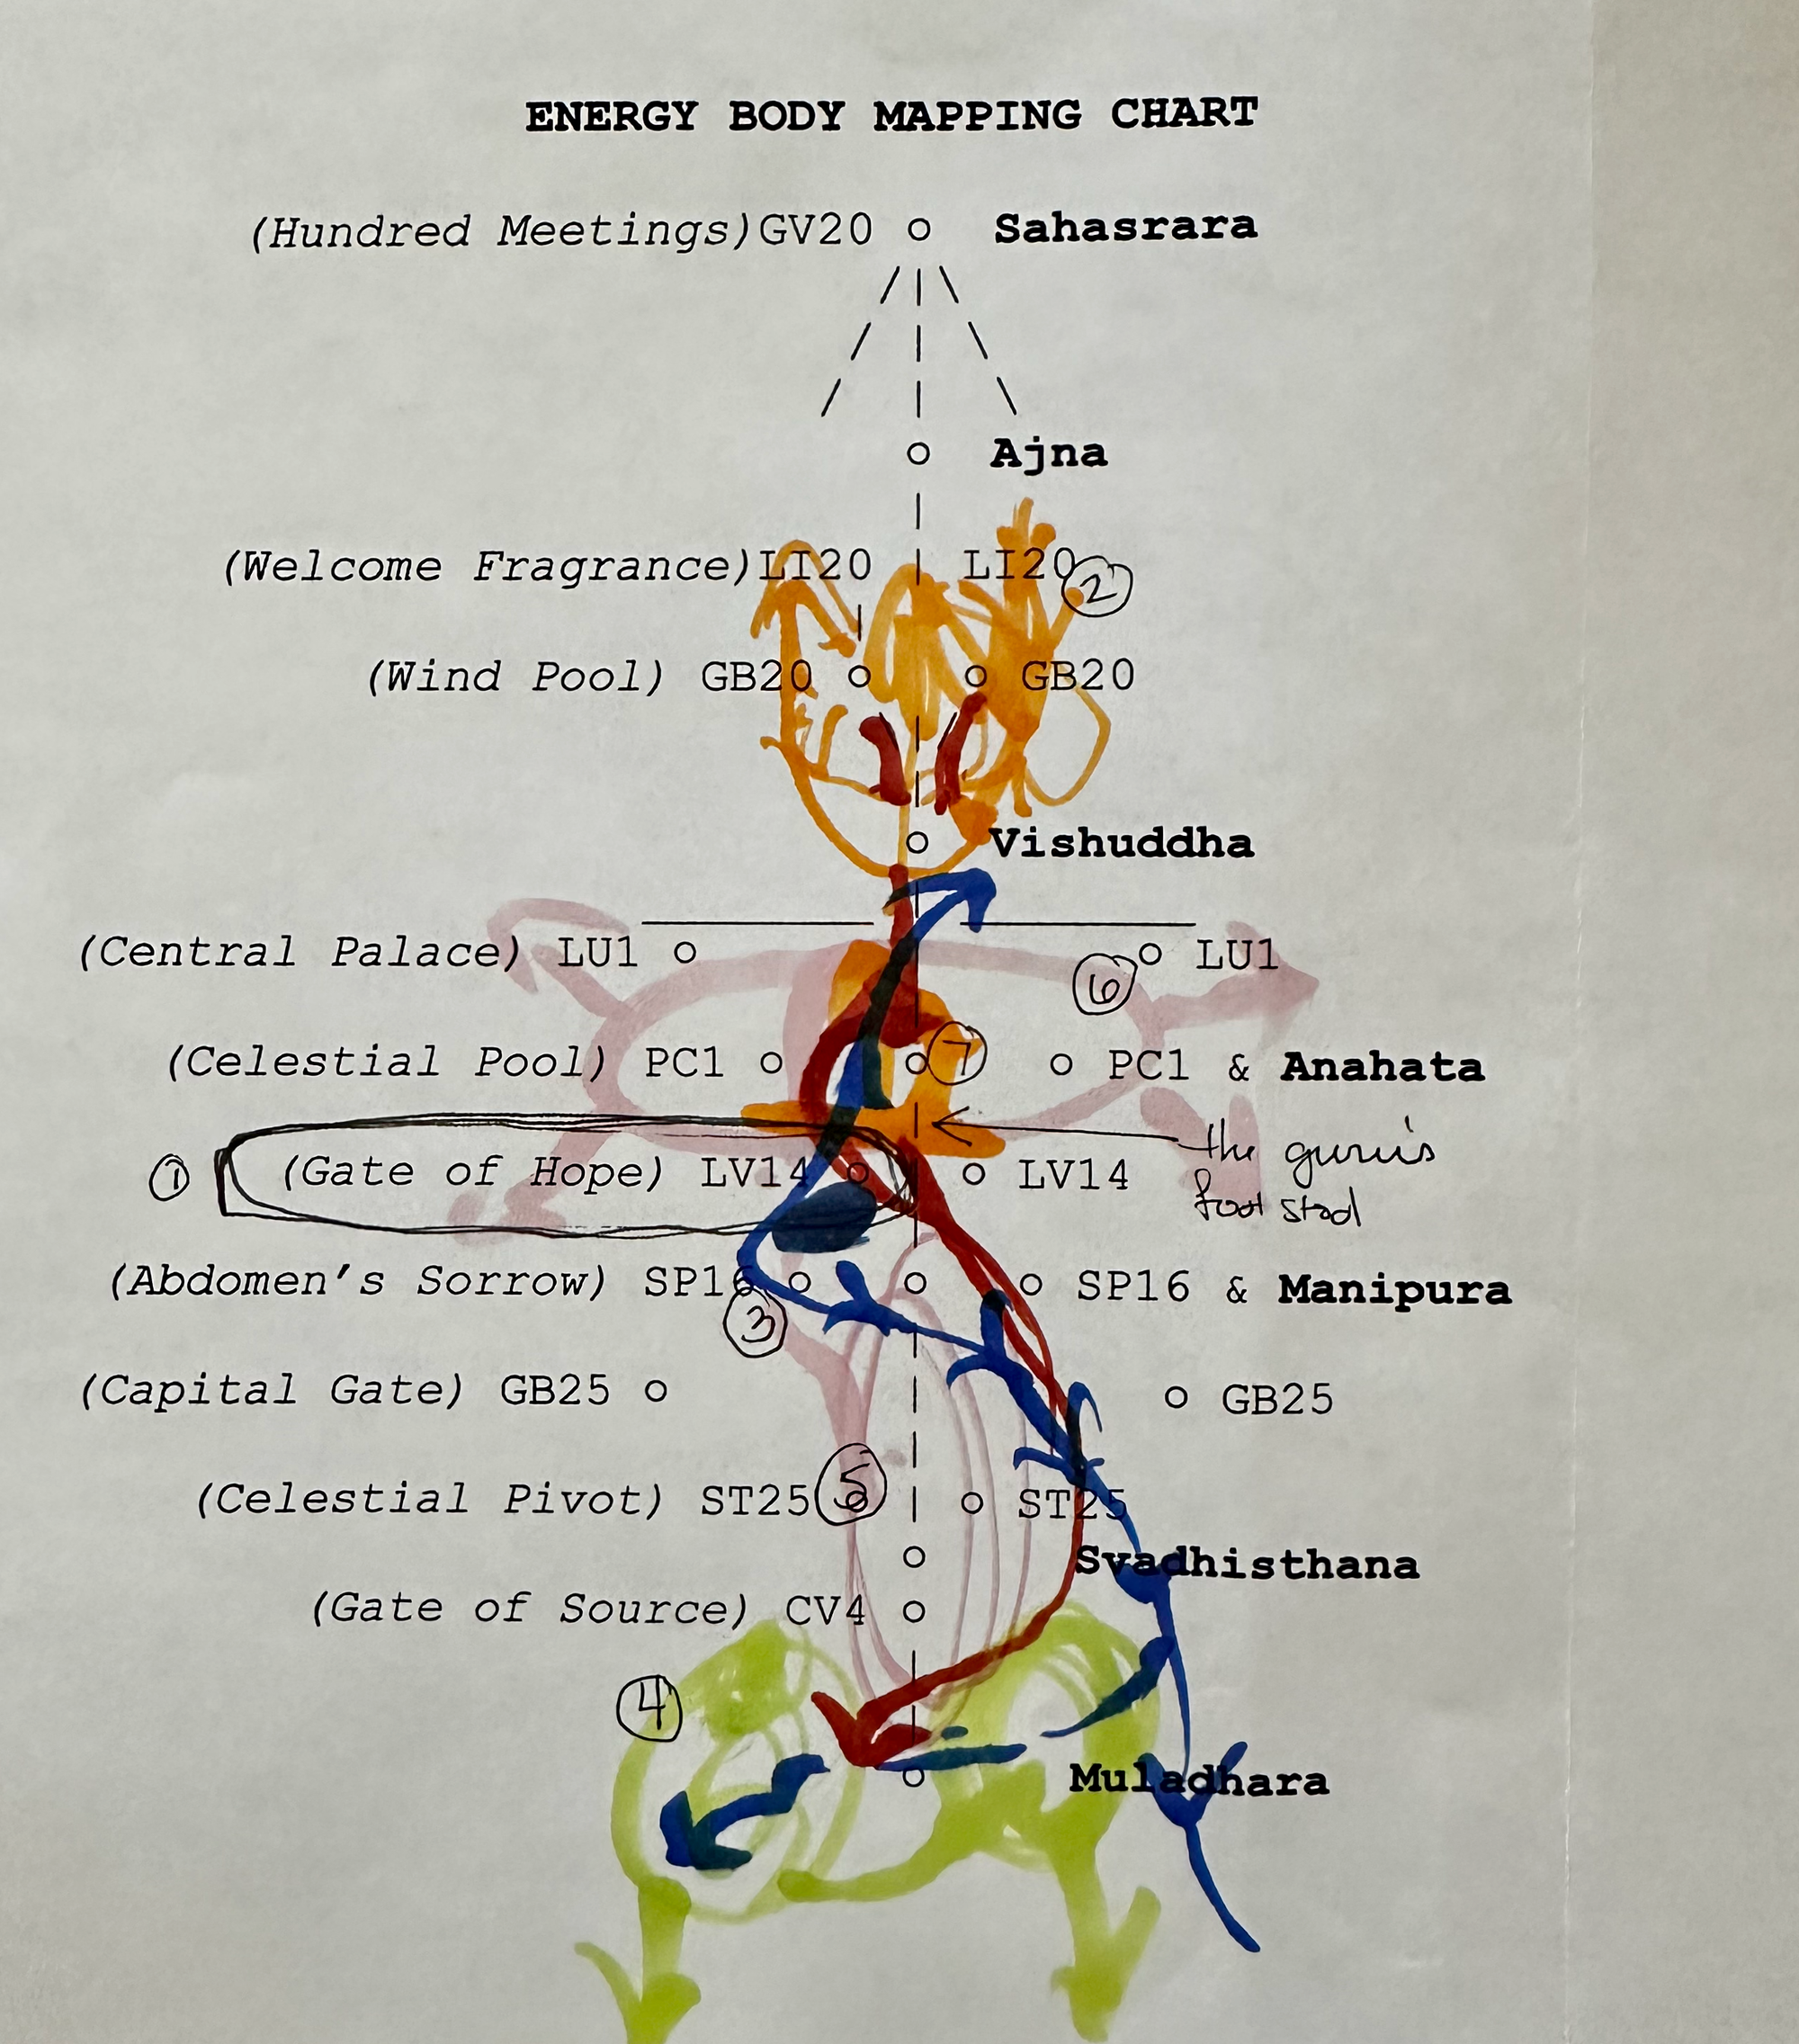 ENERGY BODY MAPPING CHART
(Hundred Meetings)GV20 Sahasrara
Ajna
(Welcome Fragrance)LI20 LI20 2
(Wind Pool) GB20 GB20
Vishuddha
(Central Palace) LU1 LU1
6
(Celestial Pool) PC1 7 PC1 & Anahata
the guru's
foot stool
1 (Gate of Hope) LV14 LV14
(Abdomen's Sorrow) SP16 SP16 & Manipura
3
(Capital Gate) GB25 GB25
(Celestial Pivot) ST25 5 ST25
Svadhisthana
(Gate of Source) CV4
4
Muladhara